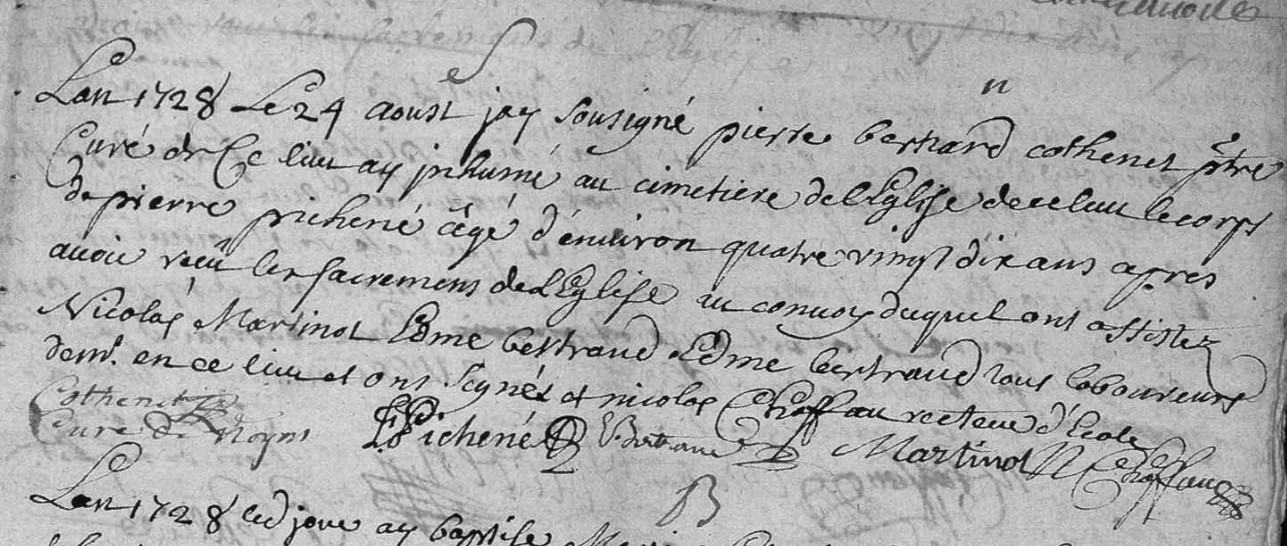 S
Lan 1728 Le 24 aoust jay sousigné pierre bertrand cothenet ptre
Curé de Ce lieu ay jnhumé au cimetiere de lEglise de ce lieu le corps
de pierre pichené âgé d'énuiron quatre vingt dix ans apres
auoir receû les sacremens de lEglise au conuoy duquel ont assistez
Nicolas Martinot Edme bertrand Edme bertrand tous laboureurs
demt. en ce lieu et ont signés et nicolas Choffau recteur d'école
Cothenet
Curé de noyers EPichené EBertrand Martinot N Choffau
B
Lan 1728 led jour ay baptisé